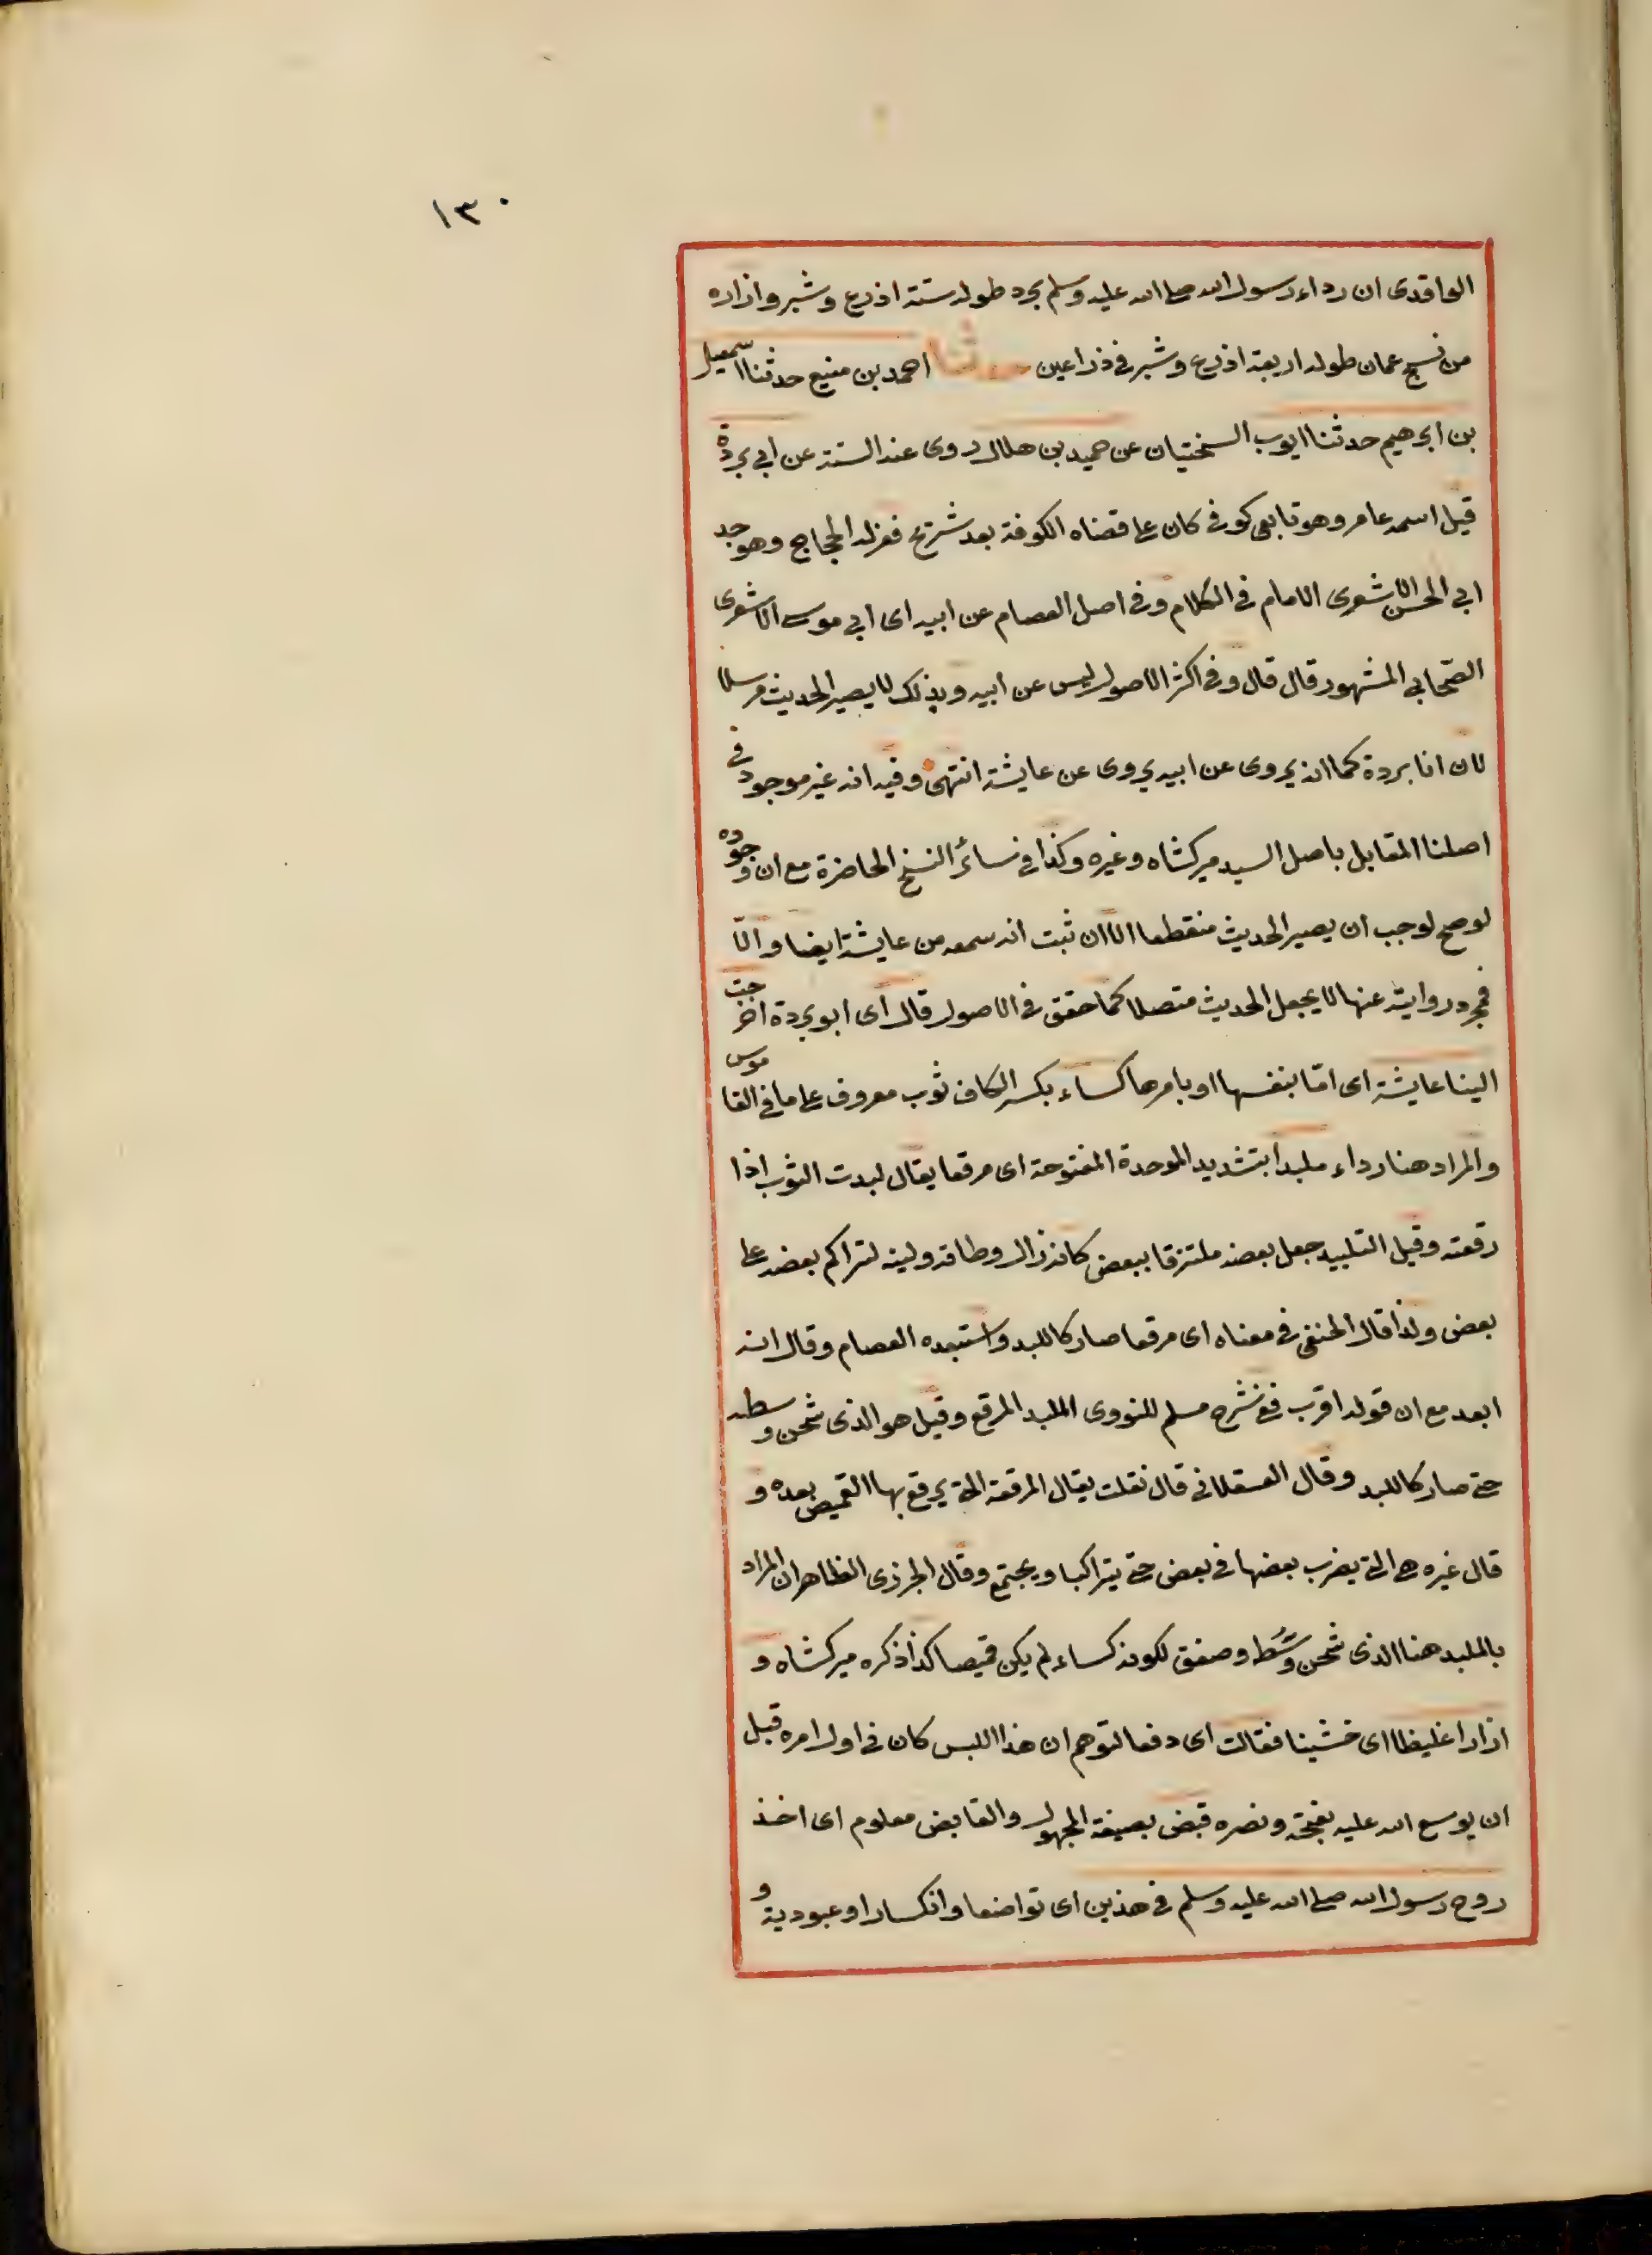 ١٣٠
الواقدى ان رداء رسول الله صلى الله عليه وسلم برد طوله ستة اذرع وشبر وازاره
من نسج عمان طوله اربعة اذرع وشبر فى ذراعين حدثنا احمد بن منيع حدثنا اسمعيل
بن ابرهيم حدثنا ايوب السختيان عن حميد بن هلال روى عنه الستة عن ابي بردة
قيل اسمه عامر وهو تابعى كوفى كان على قضاه الكوفة بعد شريح فعزله الحجاج وهو جد
ابي الحسن الاشعرى الامام فى الكلام وفى اصل العصام عن ابيه اى ابي موسى الاشعرى
الصحابي المشهور قال قال وفى اكثر الاصول ليس عن ابيه وبذلك لا يصير الحديث مرسلا
لان ابا بردة كما انه يروى عن ابيه يروى عن عايشة انتهى وفيه انه غير موجود فى
اصلنا المقابل باصل السيد ميركشاه وغيره وكذا فى سائر النسخ الحاضرة مع ان وجوده
لو صح لوجب ان يصير الحديث منقطعا الا ان ثبت انه سمعه من عايشة ايضا والا
فمجرد روايته عنها لا يجعل الحديث متصلا كما حقق فى الاصول قال اى ابو بردة اخرجت
الينا عايشة اى اما بنفسها او بامرها كساء بكسر الكاف ثوب معروف على ما فى القاموس
والمراد هنا رداء ملبدا بتشديد الموحدة المفتوحة اى مرقعا يقال لبدت الثوب اذا
رقعته وقيل التلبيد جعل بعضه ملتزقا ببعض كانه زال وطاته ولينه لتراكم بعضه على
بعض ولذا قال الحنفى فى معناه اى مرقعا صار كاللبد واستبعده العصام وقال انه
ابعد مع ان قوله اقرب ففى شرح مسلم للنووى الملبد المرقع وقيل هو الذى ثخن وسطه
حتى صار كاللبد وقال العسقلانى قال ثعلب يقال المرقعة التى يرقع بها القميص بعده و
قال غيره هى التى يضرب بعضها فى بعض حتى يتراكبا ويجتمع وقال الجزرى الظاهر ان المراد
بالملبد هنا الذى ثخن وسطه وصفق لكونه كساء لم يكن قميصا كذا ذكره ميركشاه و
ازارا غليظا اى خشينا فقالت اى دفعا لتوهم ان هذا اللبس كان فى اول امره قبل
ان يوسع الله عليه بفتحه ونصره قبض بصيغة المجهول والقابض معلوم اى اخذ
روح رسول الله صلى الله عليه وسلم فى هذين اى تواضعا وانكسارا وعبودية و